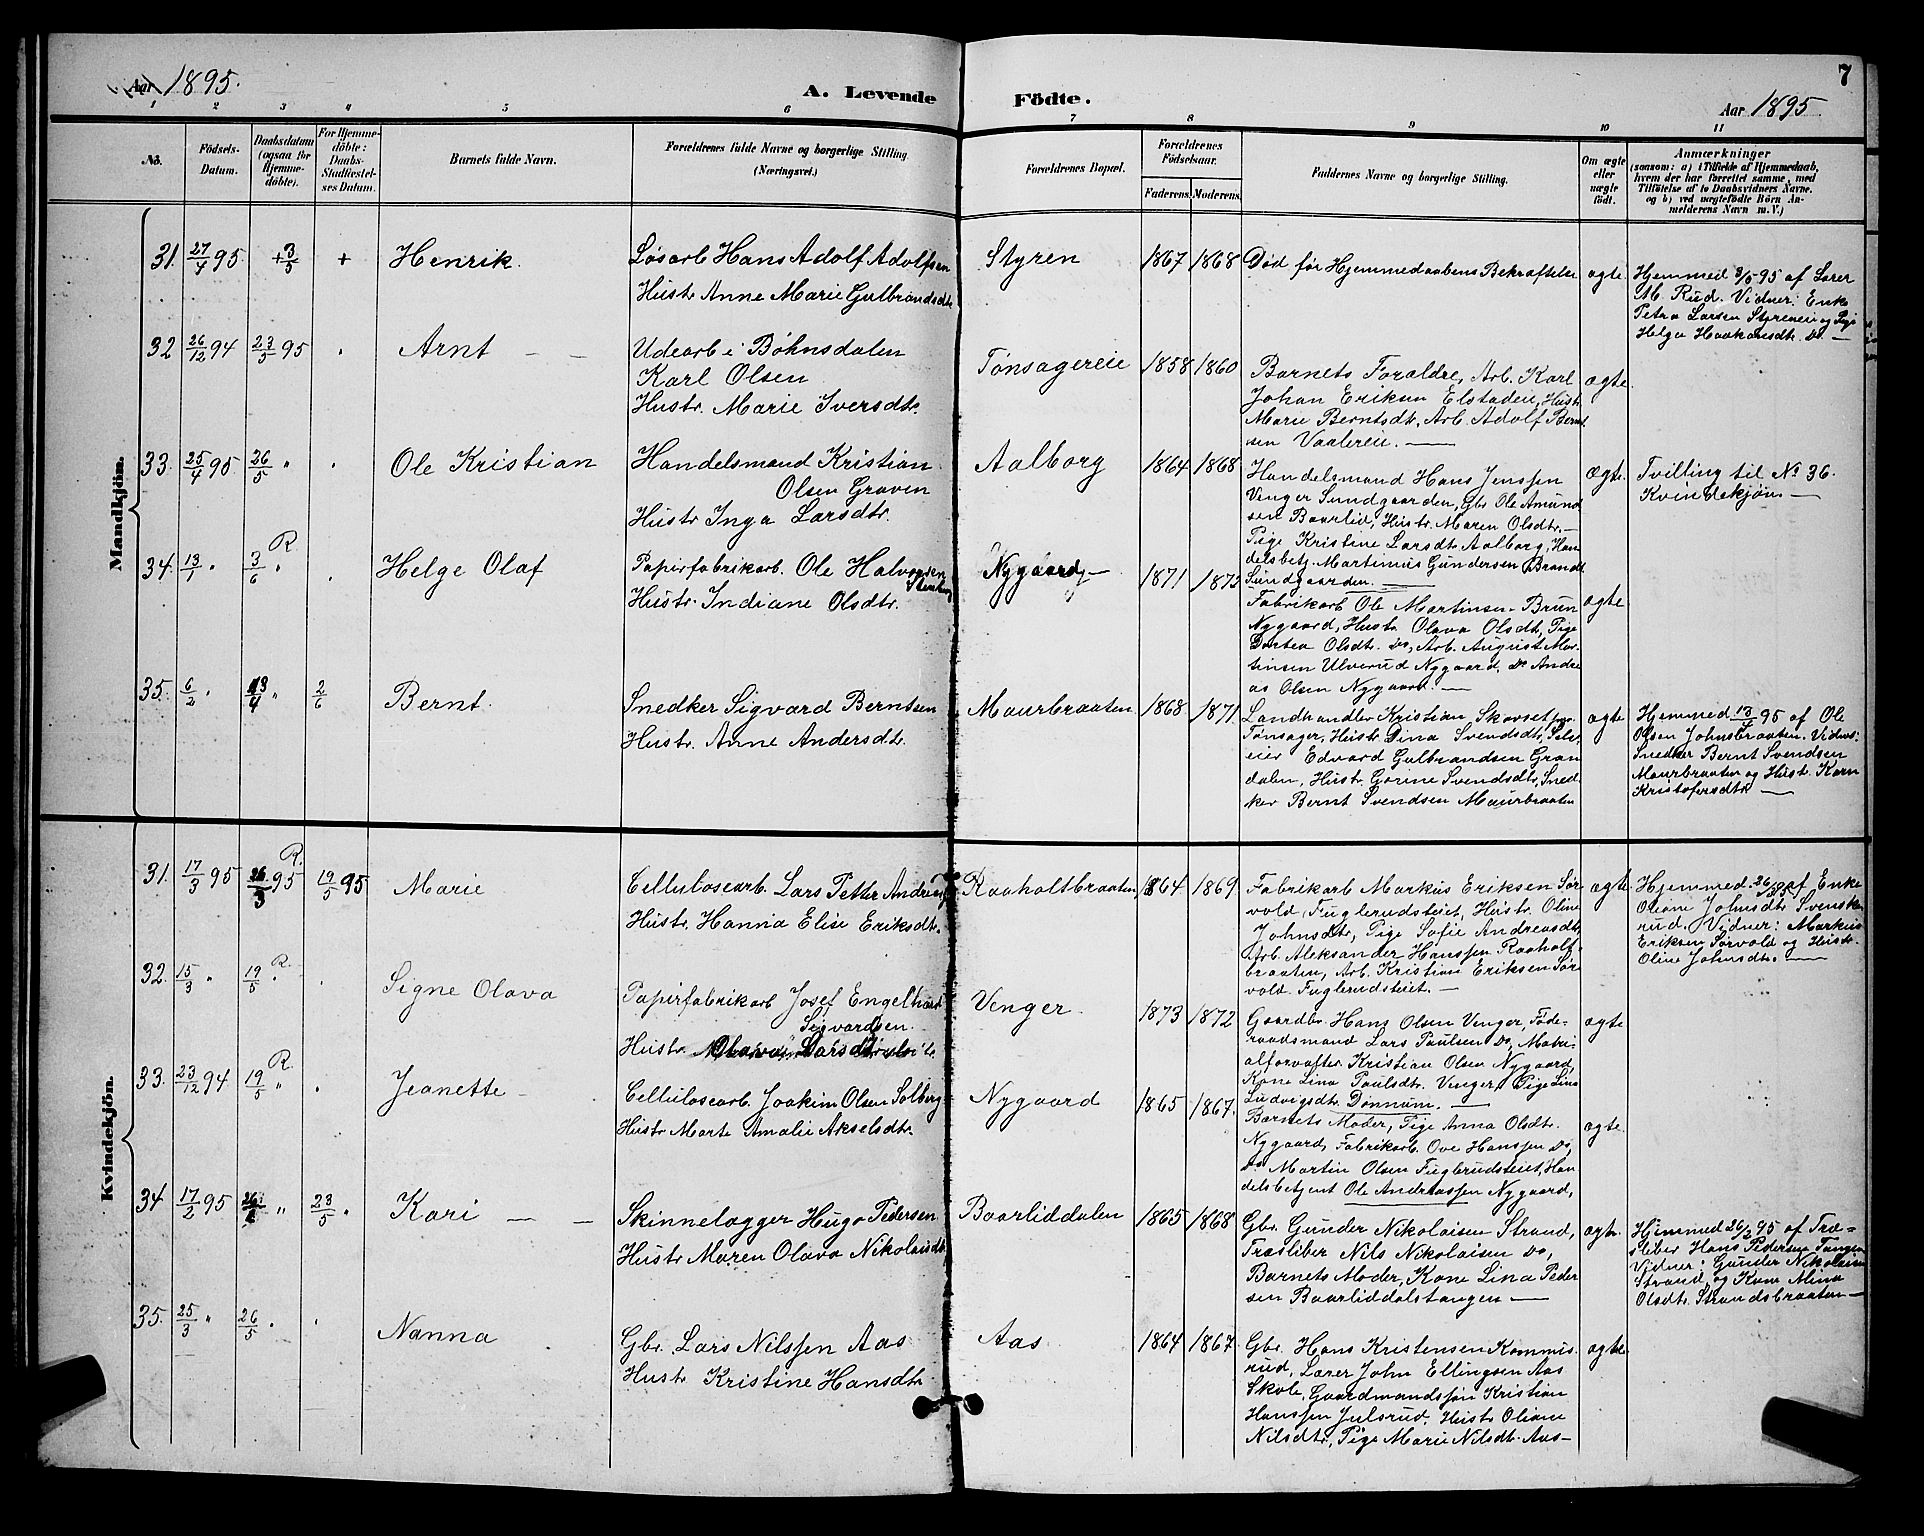 Aar 1895.
A. Levende Födte.
Aar 1895
7
1 2 3 4 5 6 7 8 9 10 11
No.
Födsels-
Datum.
Daabsdatum
(ogsaa for
Hjemme-
döbte).
For Hjemme-
döbte:
Daabs-
Stadfæstel-
ses Datum.
Barnets fulde Navn.
Forældrenes fulde Navne og borgerlige Stilling
(Næringsvei.)
Forældrenes Bopæl.
Forældrenes
Födselsaar.
Faderens. Moderens.
Faddernes Navne og borgerlige Stilling.
Om ægte
eller
uægte
födt.
Anmærkninger
(saasom: a) i Tilfælde af Hjemmedaab,
hvem der har forrettet samme, med
Tilföielse af to Daabsvidners Navne.
og b) ved uægtefödte Börn An-
melderens Navn m. V.)
Mandkjön.
31. 27/4 95. +3/5 + Henrik.
Løsarb Hans Adolf Adolfsen
Hustr. Anne Marie Gulbrandsdtr
Styren 1867 1868
Død før Hjemmedaabens Bekræftelse
ægte
Hjemmed 3/5 95 af Lærer
M. Rud. Vidner: Enke
Petra Larsen Styreneie og Pige
Helga Haakonsdtr. Do. —
32 26/12 94 23/5 95 " Arnt — —
Udearb i Bøhnsdalen
Karl Olsen
Hustr. Marie Iversdtr.
Tønsagereie 1858 1860
Barnets Forældre, Arb. Karl
Johan Eriksen Elstadeie, Hustr
Marie Berntsdtr, Arb. Adolf Bernt
sen Vaalereie. —
ægte
33. 25/4 95 26/5 " " Ole Kristian
Handelsmand Kristian
Olsen Graven
Hustr Inga Larsdtr.
Aalborg 1864 1868
Handelsmand Hans Jenssen
Venger Sundgaarden, Gbr Ole Amund
sen Baarlid, Hustr. Maren Olsdtr. —
Pige Kristine Larsdtr Aalborg, Han
delsbetj. Martinius Gundersen Brandt
Sundgaarden. —
ægte.
Tvilling til No 36.
Kvindekjøn —
34. 13/1 " 3/6 " R " Helge Olaf
Papirfabrikarb. Ole Halvorsen
Hustr. Indiane Olsdtr.
Nygaard — 1871 1872
Fabrikarb Ole Martinsen Brun
Nygaard, Hustr Olava Olsdtr, Pige
Dortea Olsdtr. Do, Arb. August Mar
tinsen Ulverud Nygaard, Do Andre
as Olsen Nygaard. —
ægte
35. 6/2 " 13/4 " 2/6 Bernt.
Snedker Sigvard Berntsen
Hustr. Anne Andersdtr.
Maurbraaten 1868 1871.
Landhandler Kristian Skovset
Tønsager, Hustr. Dina Svendsdtr, Selv
eier Edvard Gulbrandsen Gran
dalen, Hustr Gorine Svendsdtr, Sned
ker Bernt Svendsen Maurbraaten
ægte
Hjemmed 13/4 95 af Ole
Olsen Johnsbraaten. Vidner:
Snedker Bernt Svendsen
Maurbraaten og Hustr. Karn
Kristofersdtr —
Kvindekjön.
31. 17/3 95 26/3 95 R. 19/5 95 Marie
Cellulosearb. Lars Petter Andersen
Hustr. Hanna Elise Eriksdtr.
Raaholtbraaten 1864 1869
Fabrikarb Markus Eriksen Sør
vold, Fuglerudseiet, Hustr. Oline
Johnsdtr, Pige Sofie Andreasdtr,
Arb. Aleksander Hanssen Raaholt
braaten, Arb. Kristian Eriksen Sør
vold. Fuglerudseiet. —
ægte.
Hjemmed. 26/3 95 af Enke
Oliane Johnsdtr Svenske
rud. Vidner: Markus
Eriksen Sørvold og Hustr.
Oline Johnsdtr. —
32. 15/3 " 19/5 " R. " Signe Olava
Papirfabrikarb Josef Engelhard
Sigvardsen.
Hustr Olava Larsdtr
Venger. 1873 1872
Gaardbr. Hans Olsen Venger, Føde-
raadsmand Lars Paulsen Do, Matri-
alforvalter Kristian Olsen Nygaard,
Kone Lina Paulsdtr. Venger, Pige Lina
Ludvigsdtr. Dønnum. —
ægte
33. 23/12 94 19/5 " R. " Jeanette —
Cellulosearb. Joakim Olsen Solberg
Hustr Marte Amalie Akselsdtr.
Nygaard 1865 1867.
Barnets Moder, Pige Anna Olsdtr.
Nygaard, Fabrikarb. Ove Hanssen Do,
Do. Martin Olsen Fuglerudseiet, Han
delsbetjent Ole Andreassen Nygaard,
ægte.
34 17/2 95 26/2 " 23/5 " Kari — —
Skinnelægger Hugo Pedersen
Hustr Maren Olava Nikolaisdtr
Baarliddalen 1865 1868
Gbr. Gunder Nikolaisen Strand,
Træsliber Nils Nikolaisen Do,
Barnets Moder, Kone Lina Peder
sen Baarliddalstangen —
ægte.
Hjemmed 26/2 95 af Træ-
sliber Hans Pedersen Tangen
Vidner: Gunder Nikolaisen
Strand, og Kone Mina
Olsdtr. Strandsbraaten —
35. 25/3 " 26/5 " " Nanna
Gbr. Lars Nilssen Aas
Hustr Kristine Hansdtr
Aas 1864 1867.
Gbr. Hans Kristensen Kommis
rud, Lærer John Ellingsen Aas
Skole, Gaardmandssøn Kristian
Hanssen Julsrud, Hustr Oliane
Nilsdtr, Pige Marie Nilsdtr. Aas —
ægte